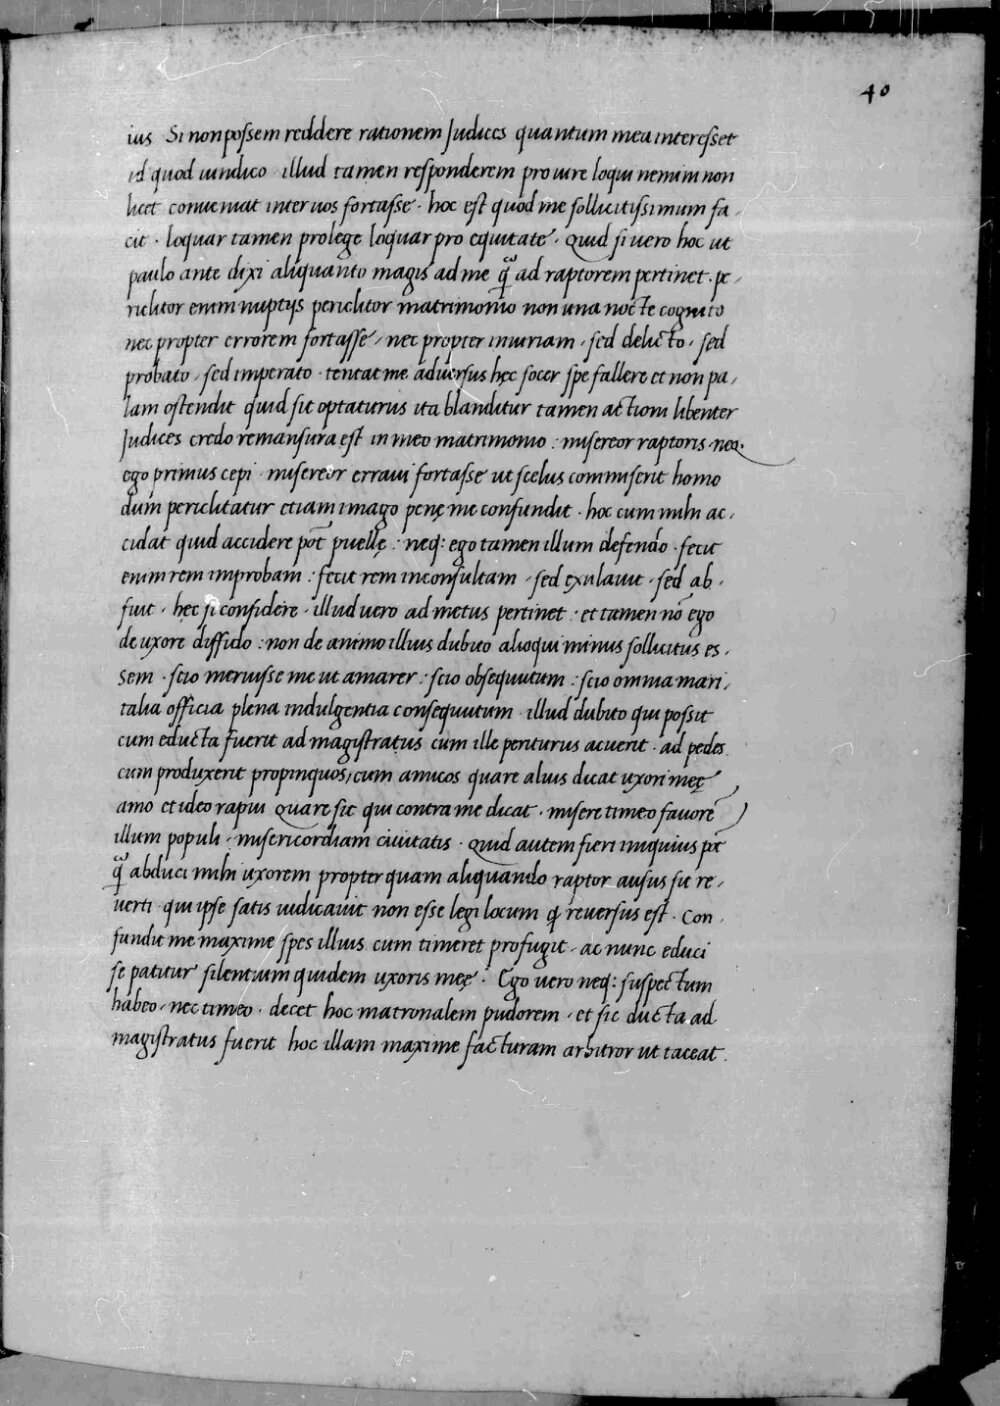 40
ius Si non possem reddere rationem Judices quantum mea interesset
id quod iudico illud tamen responderem pro iure loqui nemini non
licet conueniat inter uos fortasse · hoc est quod me sollicitissimum fa,
cit · loquar tamen pro lege loquar pro equitate · Quid si uero hoc ut
paulo ante dixi aliquanto magis ad me q̃ ad raptorem pertinet · pe,
riclitor enim nuptijs periclitor matrimonio non una nocte cognito
nec propter errorem fortasse, nec propter iniuriam, sed delicto, sed
probato, sed imperato · tentat me aduersus hęc socer spe fallere et non pa,
lam ostendit quid sit optaturus ita blanditur tamen actioni libenter
Judices credo remansura est in meo matrimonio : misereor raptoris neq·
ego primus cepi · misereor erraui fortasse ut scelus commiserit homo
dum periclitatur etiam imago penę me confundit · hoc cum mihi ac,
cidat quid accidere pōt puellę : neq: ego tamen illum defendo · fecit
enim rem improbam : fecit rem inconsultam, sed exulauit, sed ab,
fuit, hęc si considere, illud uero ad metus pertinet · et tamen nō ego
de uxore diffido : non de animo illius dubito alioqui minus sollicitus es,
sem · scio meruisse me ut amarer : scio obsequutum : scio omnia mari,
talia officia plena indulgentia consequutum · illud dubito qui possit
cum educta fuerit ad magistratus cum ille periturus acuerit · ad pedes
cum produxerit propinquos, cum amicos quare alius dicat uxori meę
amo et ideo rapui Quare sit qui contra me dicat · misere timeo fauorē
illum populi, misericordiam ciuitatis · Quid autem fieri iniquius pōt
q̃ abduci mihi uxorem propter quam aliquando raptor ausus sit re,
uerti qui ipse satis iudicauit non esse legi locum ꝙ reuersus est · Con,
fundit me maxime spes illius cum timeret profugit, ac nunc educi
se patitur silentium quidem uxoris meę · Ego uero neq: suspectum
habeo, nec timeo · decet hoc matronalem pudorem, et sic ducta ad
magistratus fuerit hoc illam maxime facturam arbitror ut taceat ·